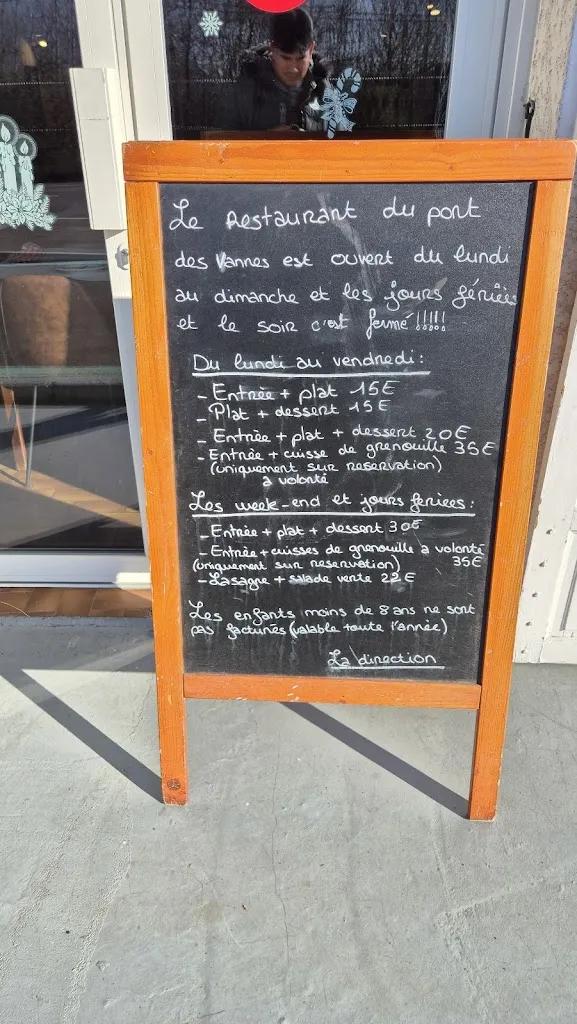 Le restaurant du port
des Vannes est ouvert du lundi
au dimanche et les jours fériés
et le soir c'est fermé !!!!!
Du lundi au vendredi :
- Entrée + plat 15€
- Plat + dessert 15€
- Entrée + plat + dessert 20€
- Entrée + cuisse de grenouille 35€
(uniquement sur reservation)
a volonté
Les week-end et jours feriées :
- Entrée + plat + dessert 30€
- Entrée + cuisses de grenouille a volonté
(uniquement sur reservation) 35€
- Lasagne + salade verte 22€
Les enfants moins de 8 ans ne sont
pas facturés (valable toute l'année)
La direction